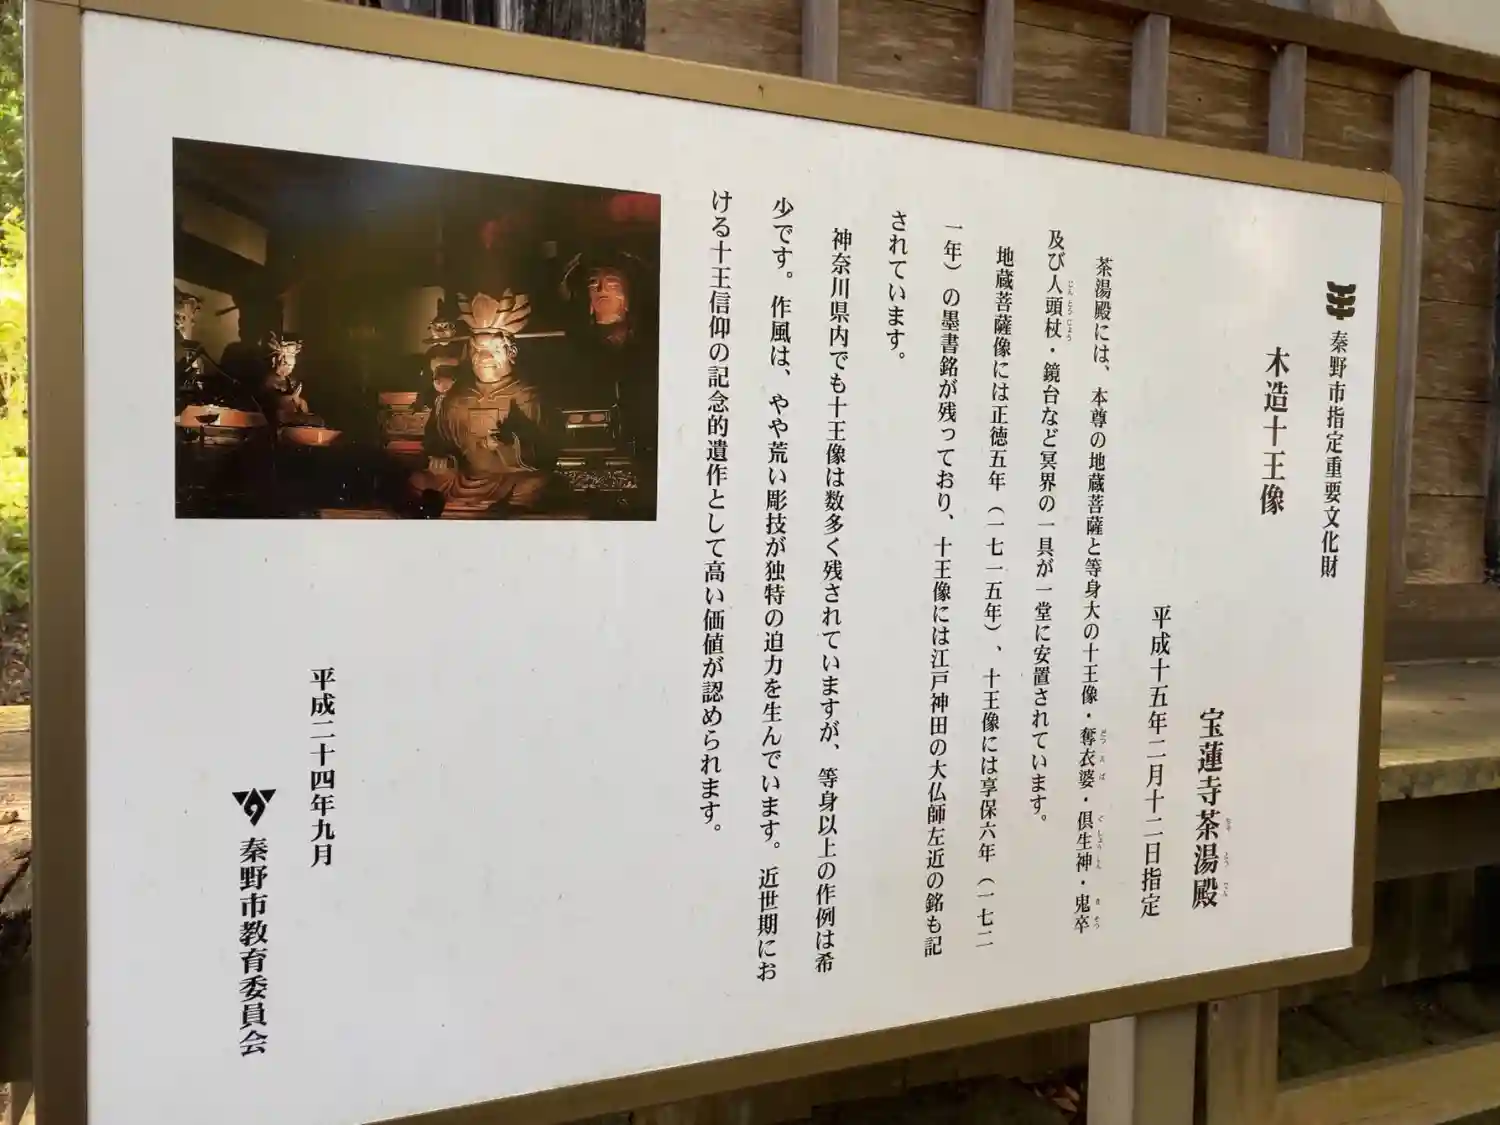 秦野市指定重要文化財
木造十王像
宝蓮寺茶湯殿
平成十五年二月十二日指定
茶湯殿には、本尊の地蔵菩薩と等身大の十王像・奪衣婆・倶生神・鬼卒
及び人頭杖・鏡台など冥界の一具が一堂に安置されています。
地蔵菩薩像には正徳五年（一七一五年）、十王像には享保六年（一七二
一年）の墨書銘が残っており、十王像には江戸神田の大仏師左近の銘も記
されています。
神奈川県内でも十王像は数多く残されていますが、等身以上の作例は希
少です。作風は、やや荒い彫技が独特の迫力を生んでいます。近世期にお
ける十王信仰の記念的遺作として高い価値が認められます。
平成二十四年九月
秦野市教育委員会